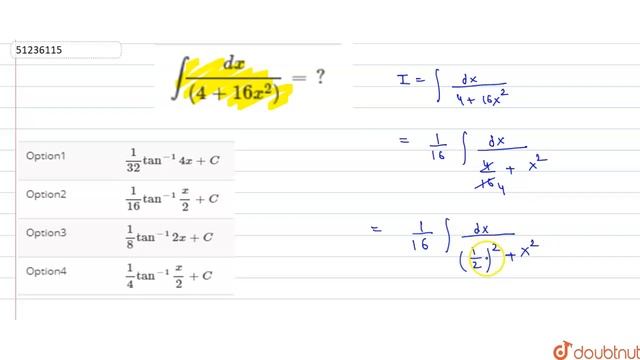 51236115
∫ dx/(4 + 16x²) = ?
Option1 1/32 tan⁻¹ 4x + C
Option2 1/16 tan⁻¹ x/2 + C
Option3 1/8 tan⁻¹ 2x + C
Option4 1/4 tan⁻¹ x/2 + C
I = ∫ dx/(4 + 16x²)
= 1/16 ∫ dx/(4/16 4 + x²)
= 1/16 ∫ dx/((1/2)² + x²)
doubtnut